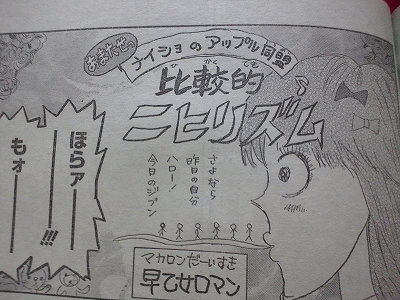 おまたせっ
ナイショのアップル同盟
比較的
ひかくてき
ニヒリズム
さよなら
昨日の自分
ハロー!
今日のジブン
ほらァ━━
━━!!!
もォ━━
マカロンだーいすき
早乙女ロマン